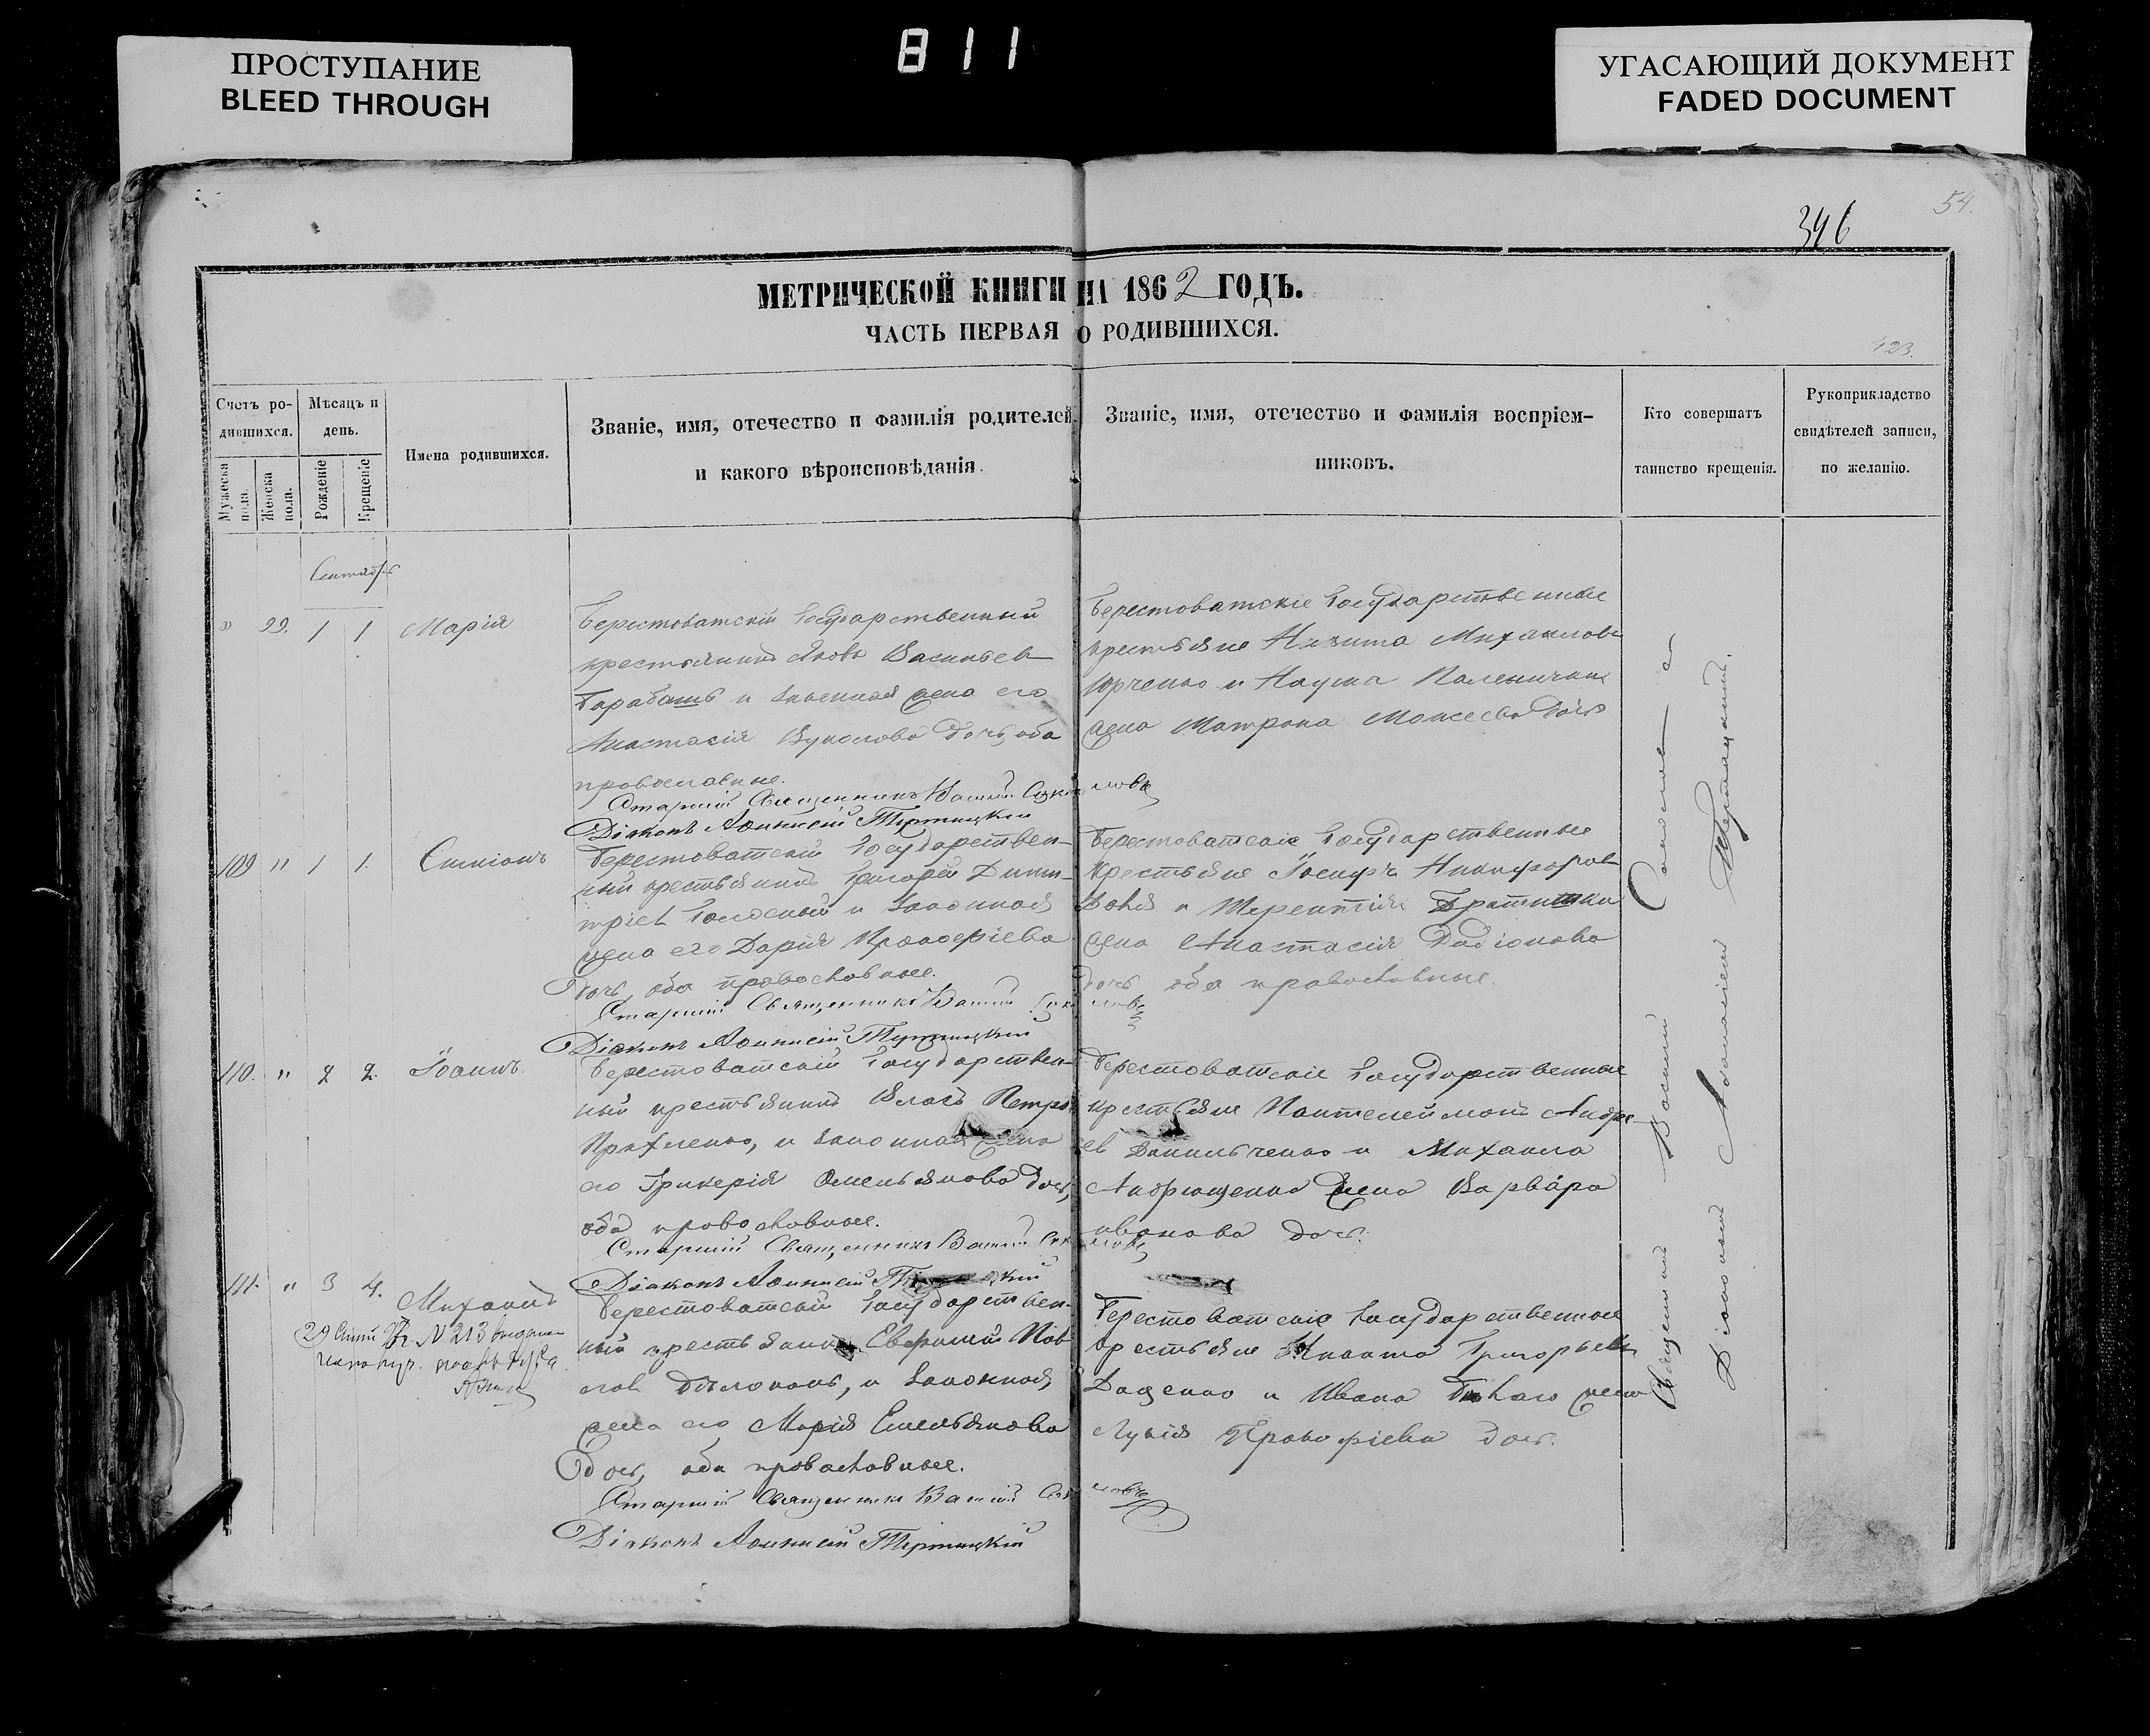 ПРОСТУПАНИЕ
BLEED THROUGH
811
УГАСАЮЩИЙ ДОКУМЕНТ
FADED DOCUMENT
54.
346
МЕТРИЧЕСКОЙ КНИГИ НА 1862 ГОДЪ.
ЧАСТЬ ПЕРВАЯ О РОДИВШИХСЯ.
123.
Счетъ ро-
дившихся.
Мужеска
пола.
Женска
пола.
Мѣсяцъ и
день.
Рожденіе
Крещеніе
Имена родившихся.
Званіе, имя, отечество и фамилія родителей
и какого вѣроисповѣданія.
Званіе, имя, отечество и фамилія воспріем-
никовъ.
Кто совершатъ
таинство крещенія.
Рукоприкладство
свидѣтелей записи,
по желанію.
Сентябрь
" 99. 1 1 Марія
Берестоватскій Государственный
крестьянинъ Яковъ Васильев
Барабашъ и законная жена его
Анастасія Вуколова дочь, оба
православные.
Старшій Священникъ Василій Соколовъ
Діаконъ Афанасій Тертицкій
Берестоватскіе Государственные
крестьяне Никита Михаиловъ
Юрченко и Наума Каленичика
жена Матрона Моисеева дочь
109 " 1 1. Симеонъ
Берестоватскій Государствен-
ный крестьянинъ Григорій Дими-
тріев Голосный и законная
жена его Дарія Прокофіева
дочь, оба православные.
Старшій Священникъ Василій Соколовъ
Діаконъ Афанасій Тертицкій
Берестоватскіе Государственные
крестьяне Іосифъ Никифоров
и Терентія
жена Анастасія Родіонова
дочь оба православные.
110. " 2 2. Іоаннъ
Берестоватскій Государствен-
ный крестьянинъ Власъ Петров
и законная жена
его Гликерія Омельянова дочь,
оба православные.
Старшій Священникъ Василій Соколовъ
Діаконъ Афанасій
Берестоватскіе Государственные
крестьяне Пантелеймонъ Андре-
ев Данильченко и Михаила
Андрющенка жена Варвара
иванова дочь.
111. " 3 4. Михаилъ
29 № 213
Берестоватскій Государствен-
ный крестьянинъ Евфимій Пав-
лов и законная
жена его Марія Емельянова
дочь, оба православные.
Старшій Священникъ Василій Соколовъ
Діаконъ Афанасій Тертицкій
Берестоватскіе Государственные
крестьяне Григорьевъ
Даценко и Ивана Бѣлаго жена
Лукія Прокофіева дочь.
Священникъ Василій Соколовъ съ
Діакономъ Афанасіемъ Тертицкимъ.